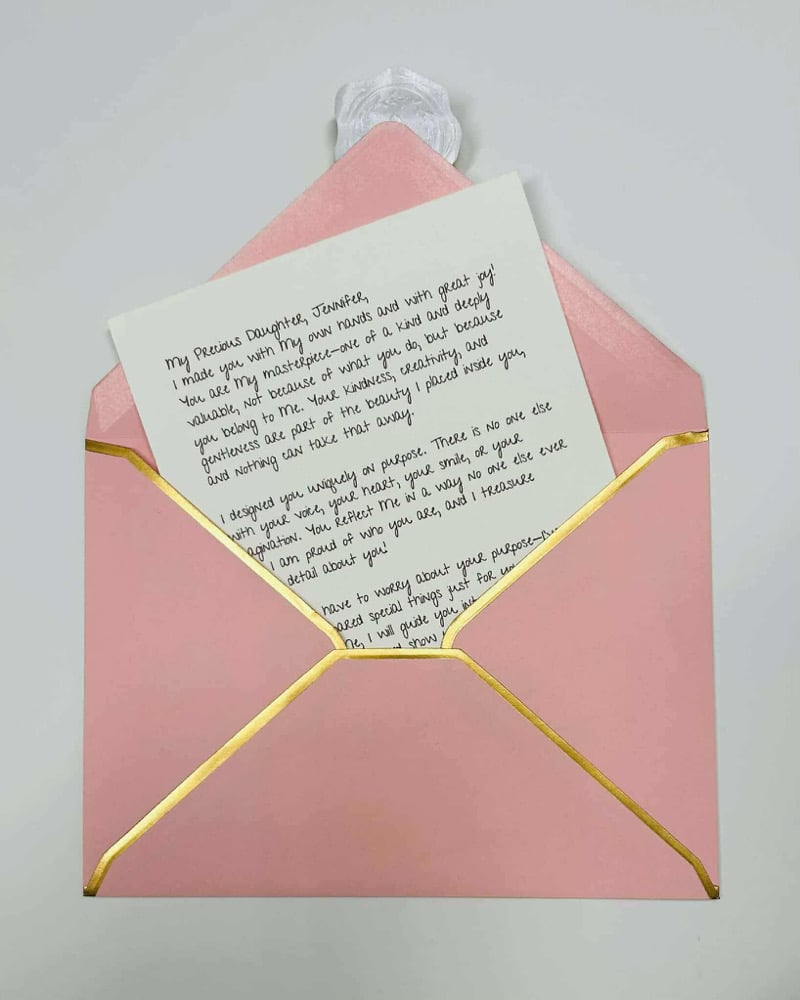 My Precious Daughter, Jennifer,
I made you with My own hands and with great joy!
You are My masterpiece—one of a kind and deeply
valuable, not because of what you do, but because
you belong to Me. Your kindness, creativity, and
gentleness are part of the beauty I placed inside you,
and nothing can take that away.
I designed you uniquely on purpose. There is no one else
with your voice, your heart, your smile, or your
agination. You reflect Me in a way no one else ever
I am proud of who you are, and I treasure
detail about you!
have to worry about your purpose—
ared special things just for
I will guide you
show